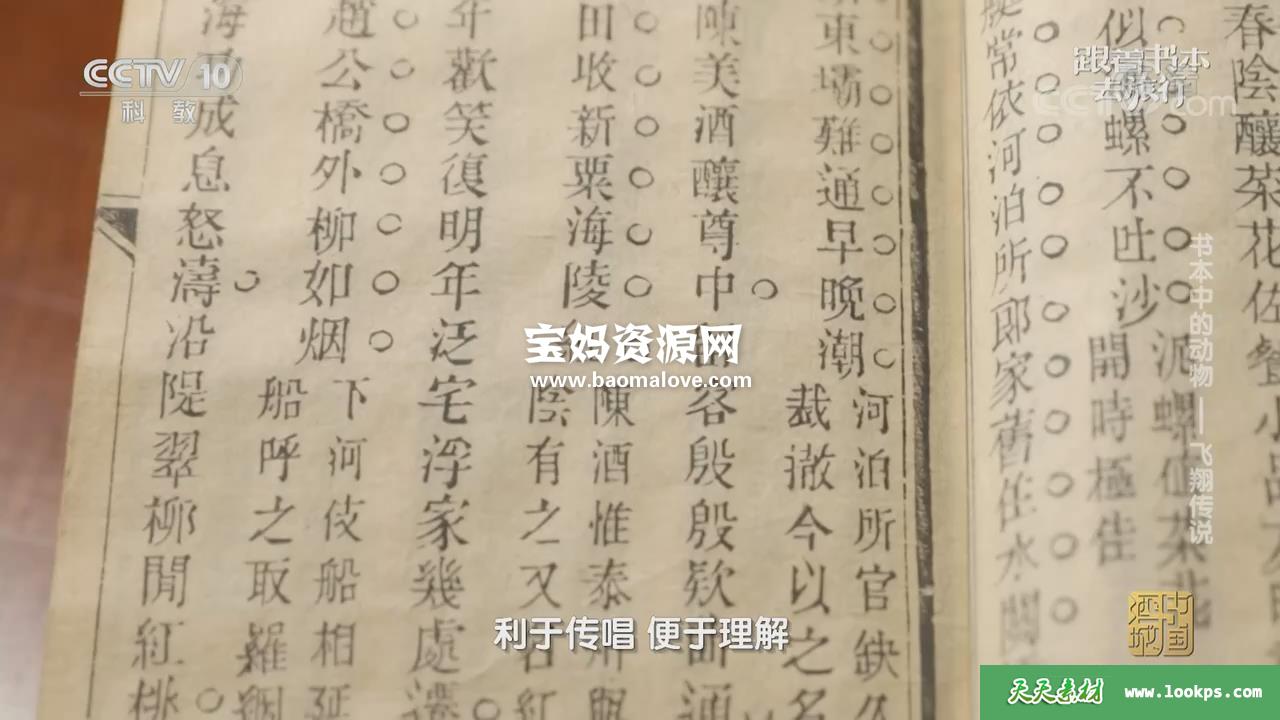 CCTV 10
科教
跟着书本
去旅行
春陰釀菜花佐餐小品
似螺不吐沙
泥螺值菜花
開時極佳
常依河泊所郎家舊住水關
東壩難通早晚潮
河泊所官缺久
裁撤今以之名
陳美酒釀尊中留客殷殷
田收新粟海陵
陳酒惟泰州與
陰有之又名紅
年歡笑復明年泛宅浮家幾處還
趙公橋外柳如烟
下河伎船相延
船呼之取羅綢
海成息怒濤沿隄翠柳間紅桃
书本中的动物——飞翔传说
宝妈资源网
www.baomalove.com
利于传唱 便于理解
中国酒城
天天素材 www.lookps.com